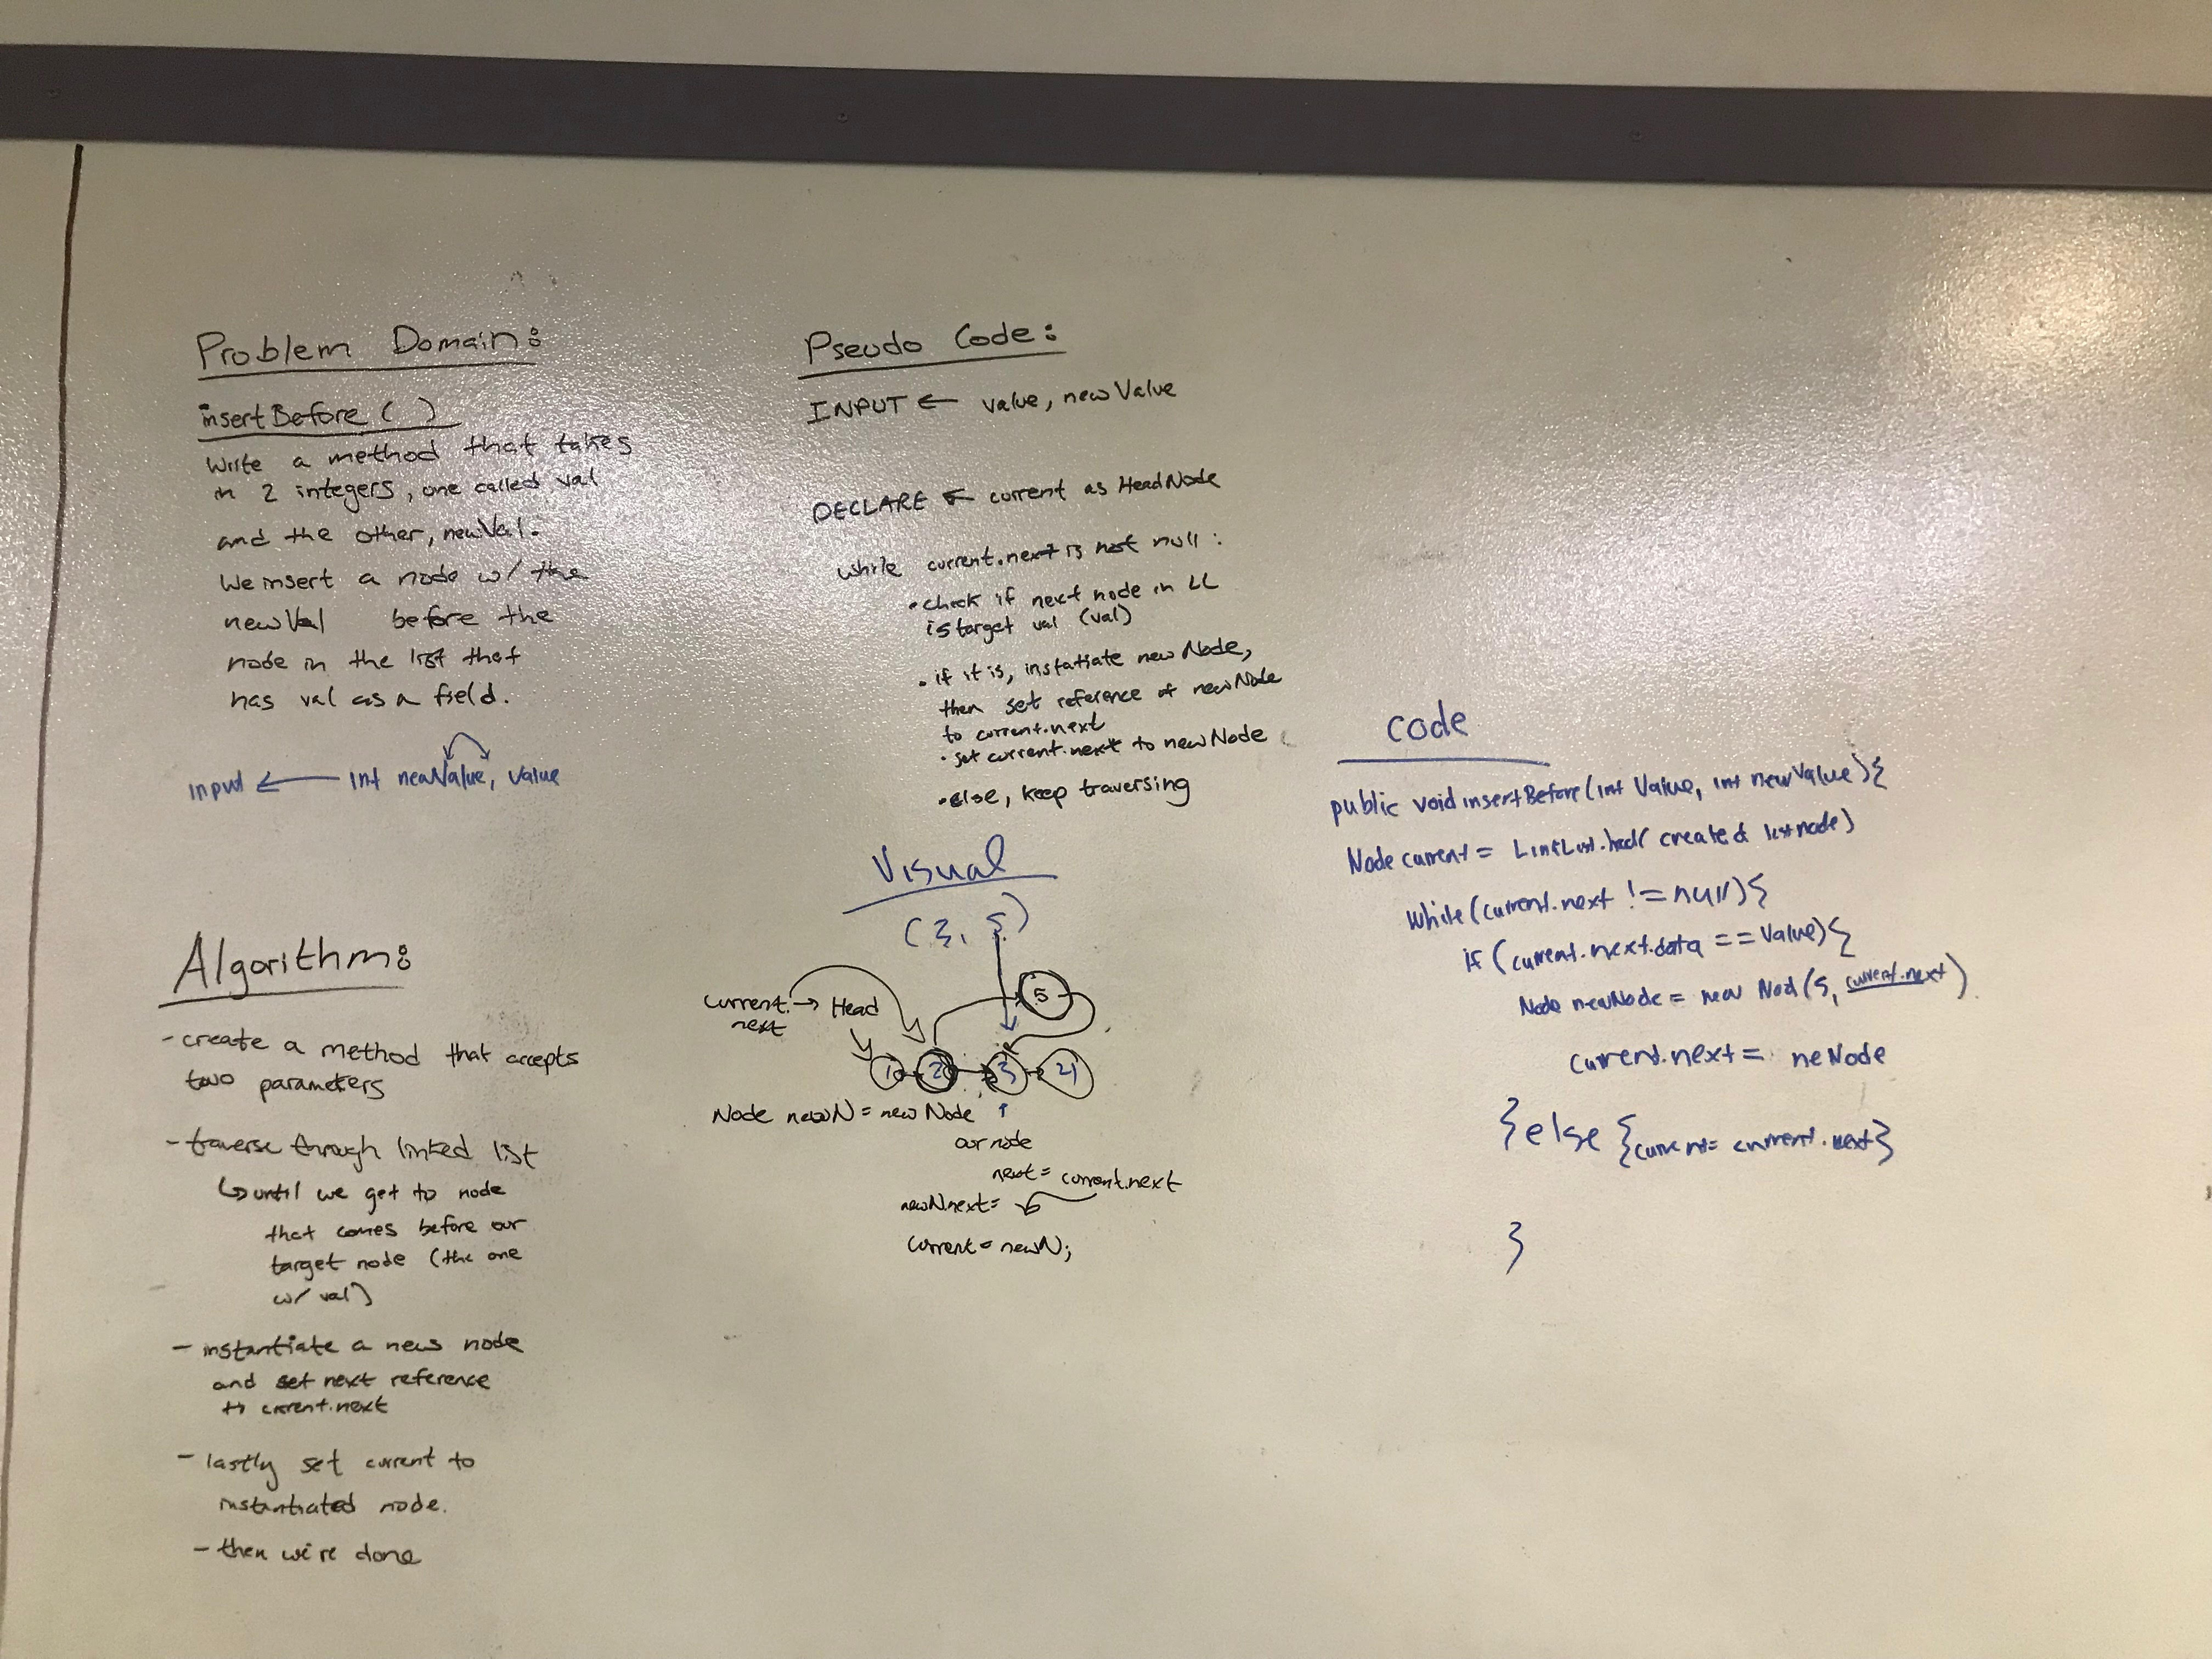 Problem Domain:
insertBefore ( )
Write a method that takes
in 2 integers, one called val
and the other, newVal.
We insert a node w/ the
newVal before the
node in the list that
has val as a field.
Input ← Int newValue, value
Algorithm:
- create a method that accepts
two parameters
- traverse through linked list
↳ until we get to node
that comes before our
target node (the one
w/ val)
- instantiate a new node
and set next reference
to current.next
- lastly set current to
instantiated node.
- then we're done
Pseudo Code:
INPUT ← value, newValue
DECLARE ← current as HeadNode
while current.next is not null :
• check if next node in LL
is target val (val)
• if it is, instatiate newNode,
then set reference of newNode
to current.next
• set current.next to newNode
• else, keep traversing
Visual
(3, 5)
5
current. → Head
next
1 2 3 4
Node newN = new Node
our node
next = current.next
newN.next =
current = newN;
Code
public void insertBefore(int Value, int newValue){
Node current = LinkList.head( created listnode)
while(current.next != null){
if (current.next.data == Value){
Node newNode = new Nod(5, current.next)
current.next = neNode
}else {current= current.next}
}